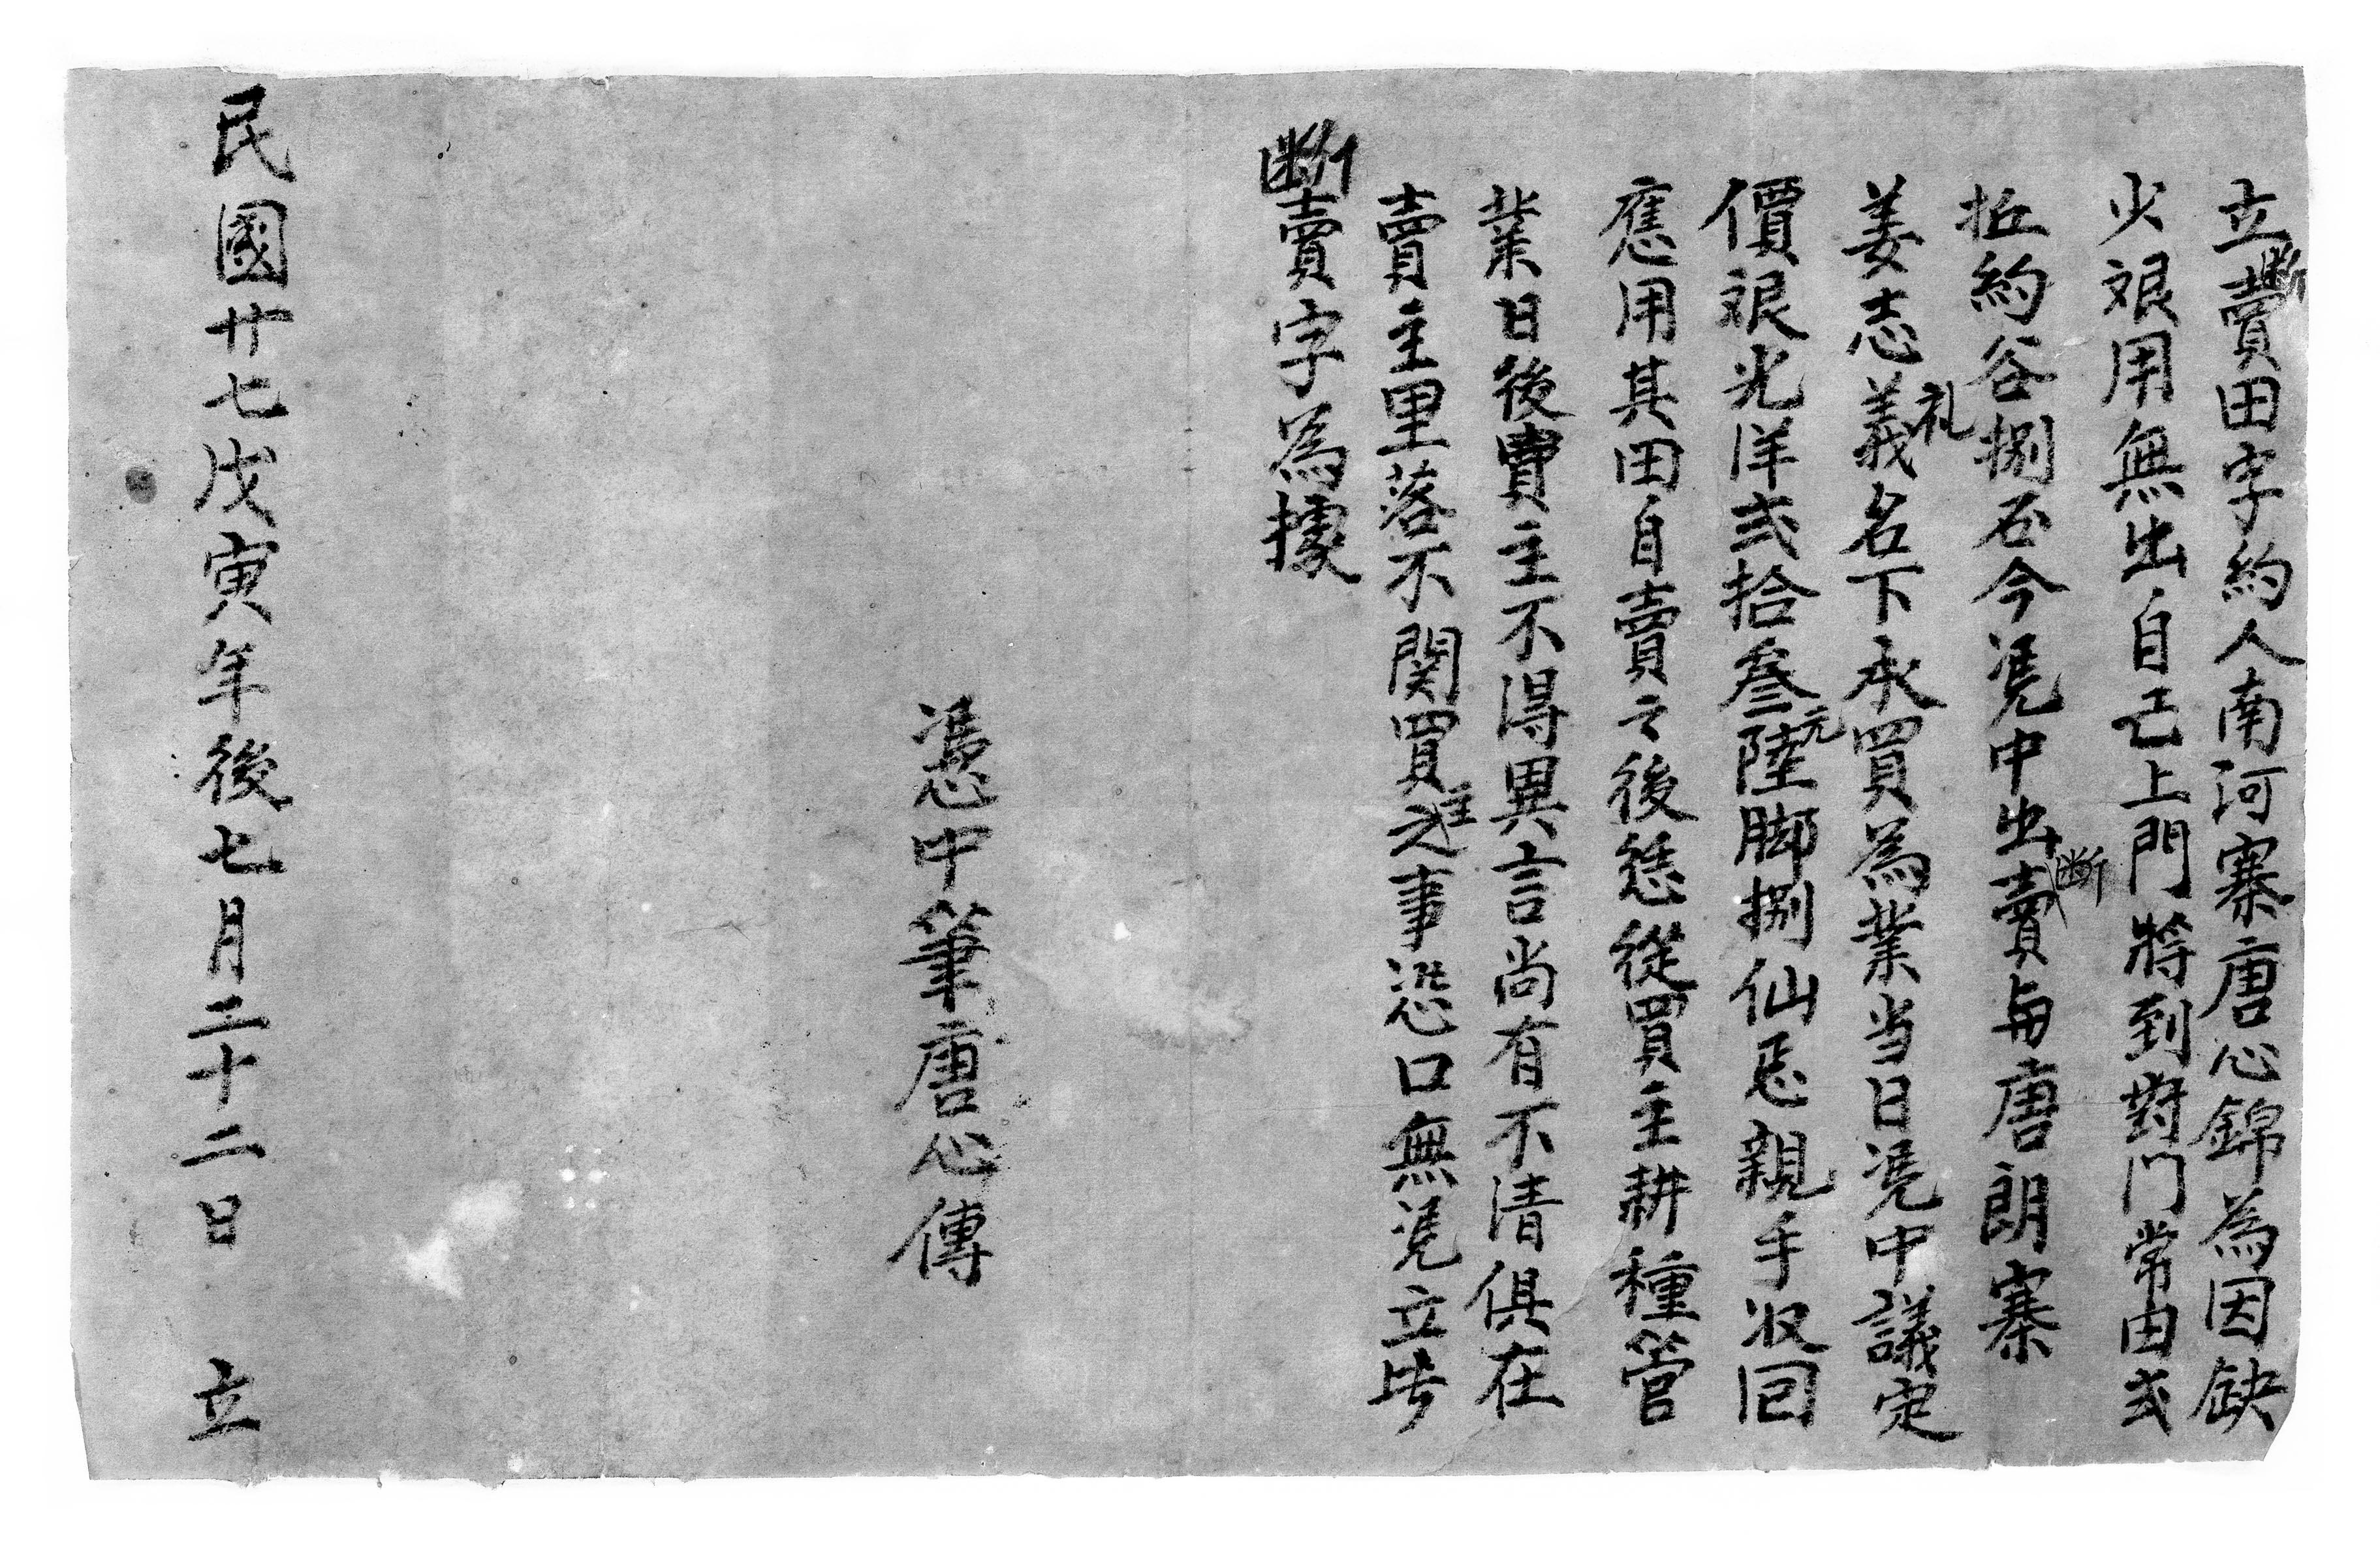 立斷賣田字約人南河寨唐心錦為因缺
少艮用無出自己上門將到對门常田弍
坵約谷捌石今凴中出斷賣与唐朗寨
姜志義礼名下承買為業当日凴中議定
價艮光洋弍拾叁元陸脚捌仙忌親手收回
應用其田自賣之後恁從買主耕種管
業日後賣主不得異言尚有不清俱在
賣主里落不関買主之事恐口無凴立此
斷賣字為據
憑中筆唐心傳
民國廿七戊寅年後七月二十二日 立